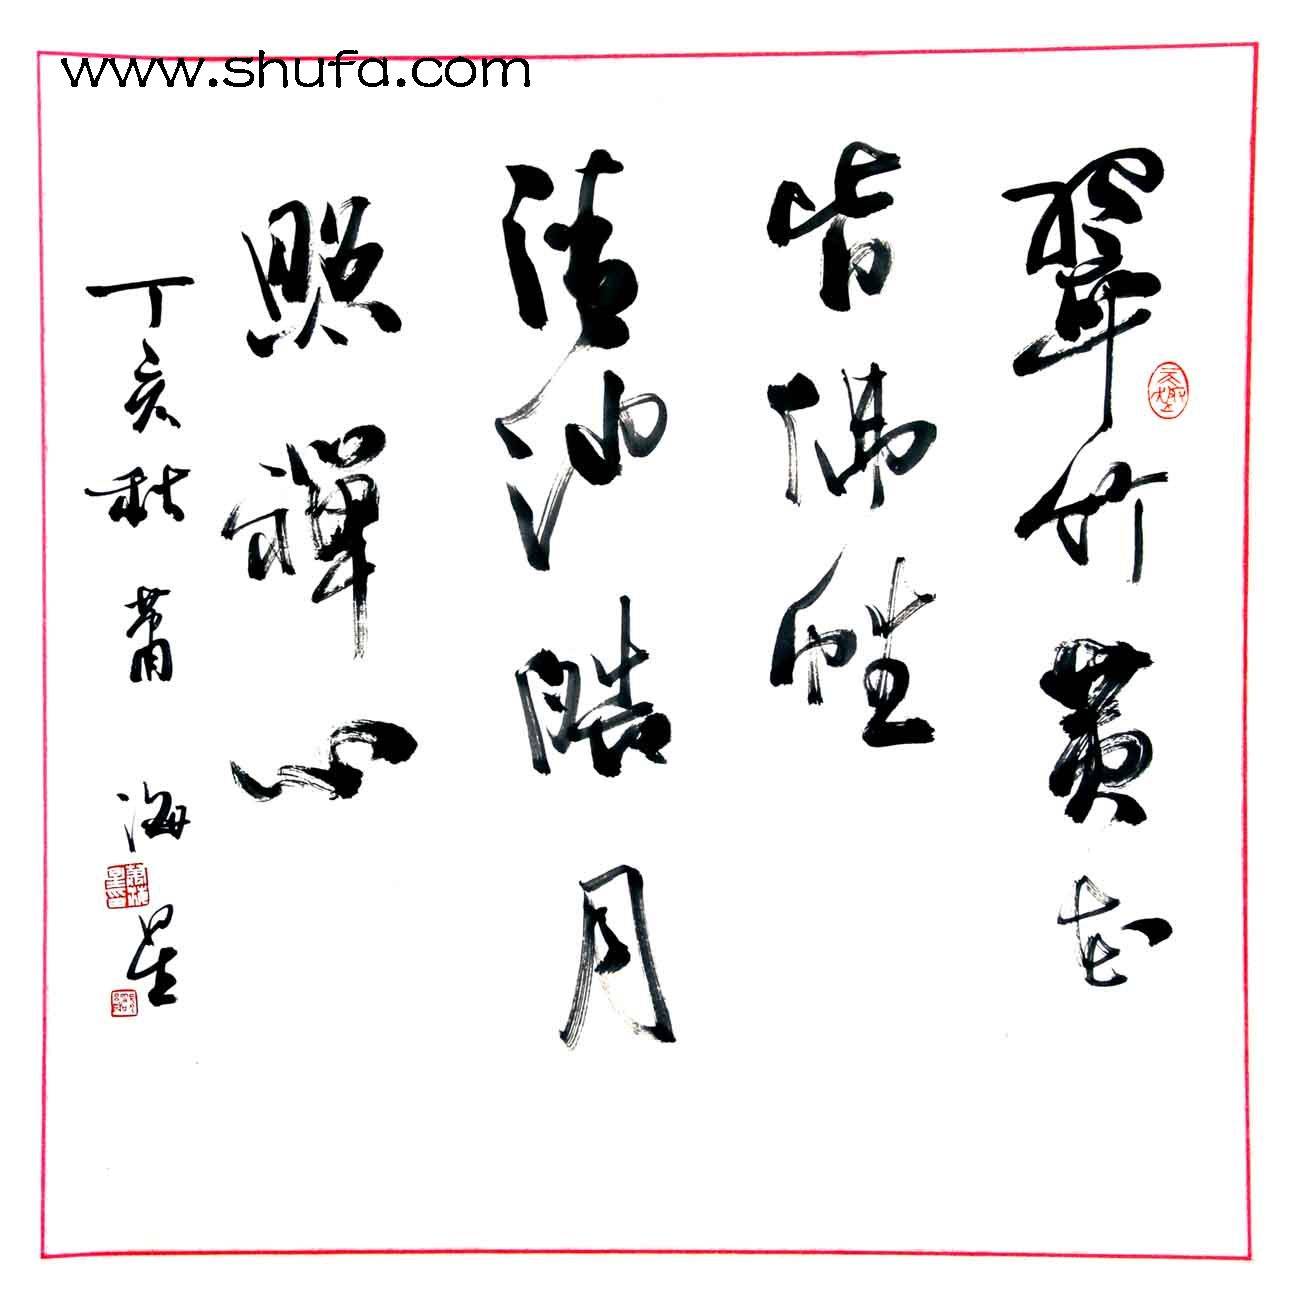 www.shufa.com
翠竹黄花
皆佛性
清池皓月
照禪心
丁亥秋 萧海星